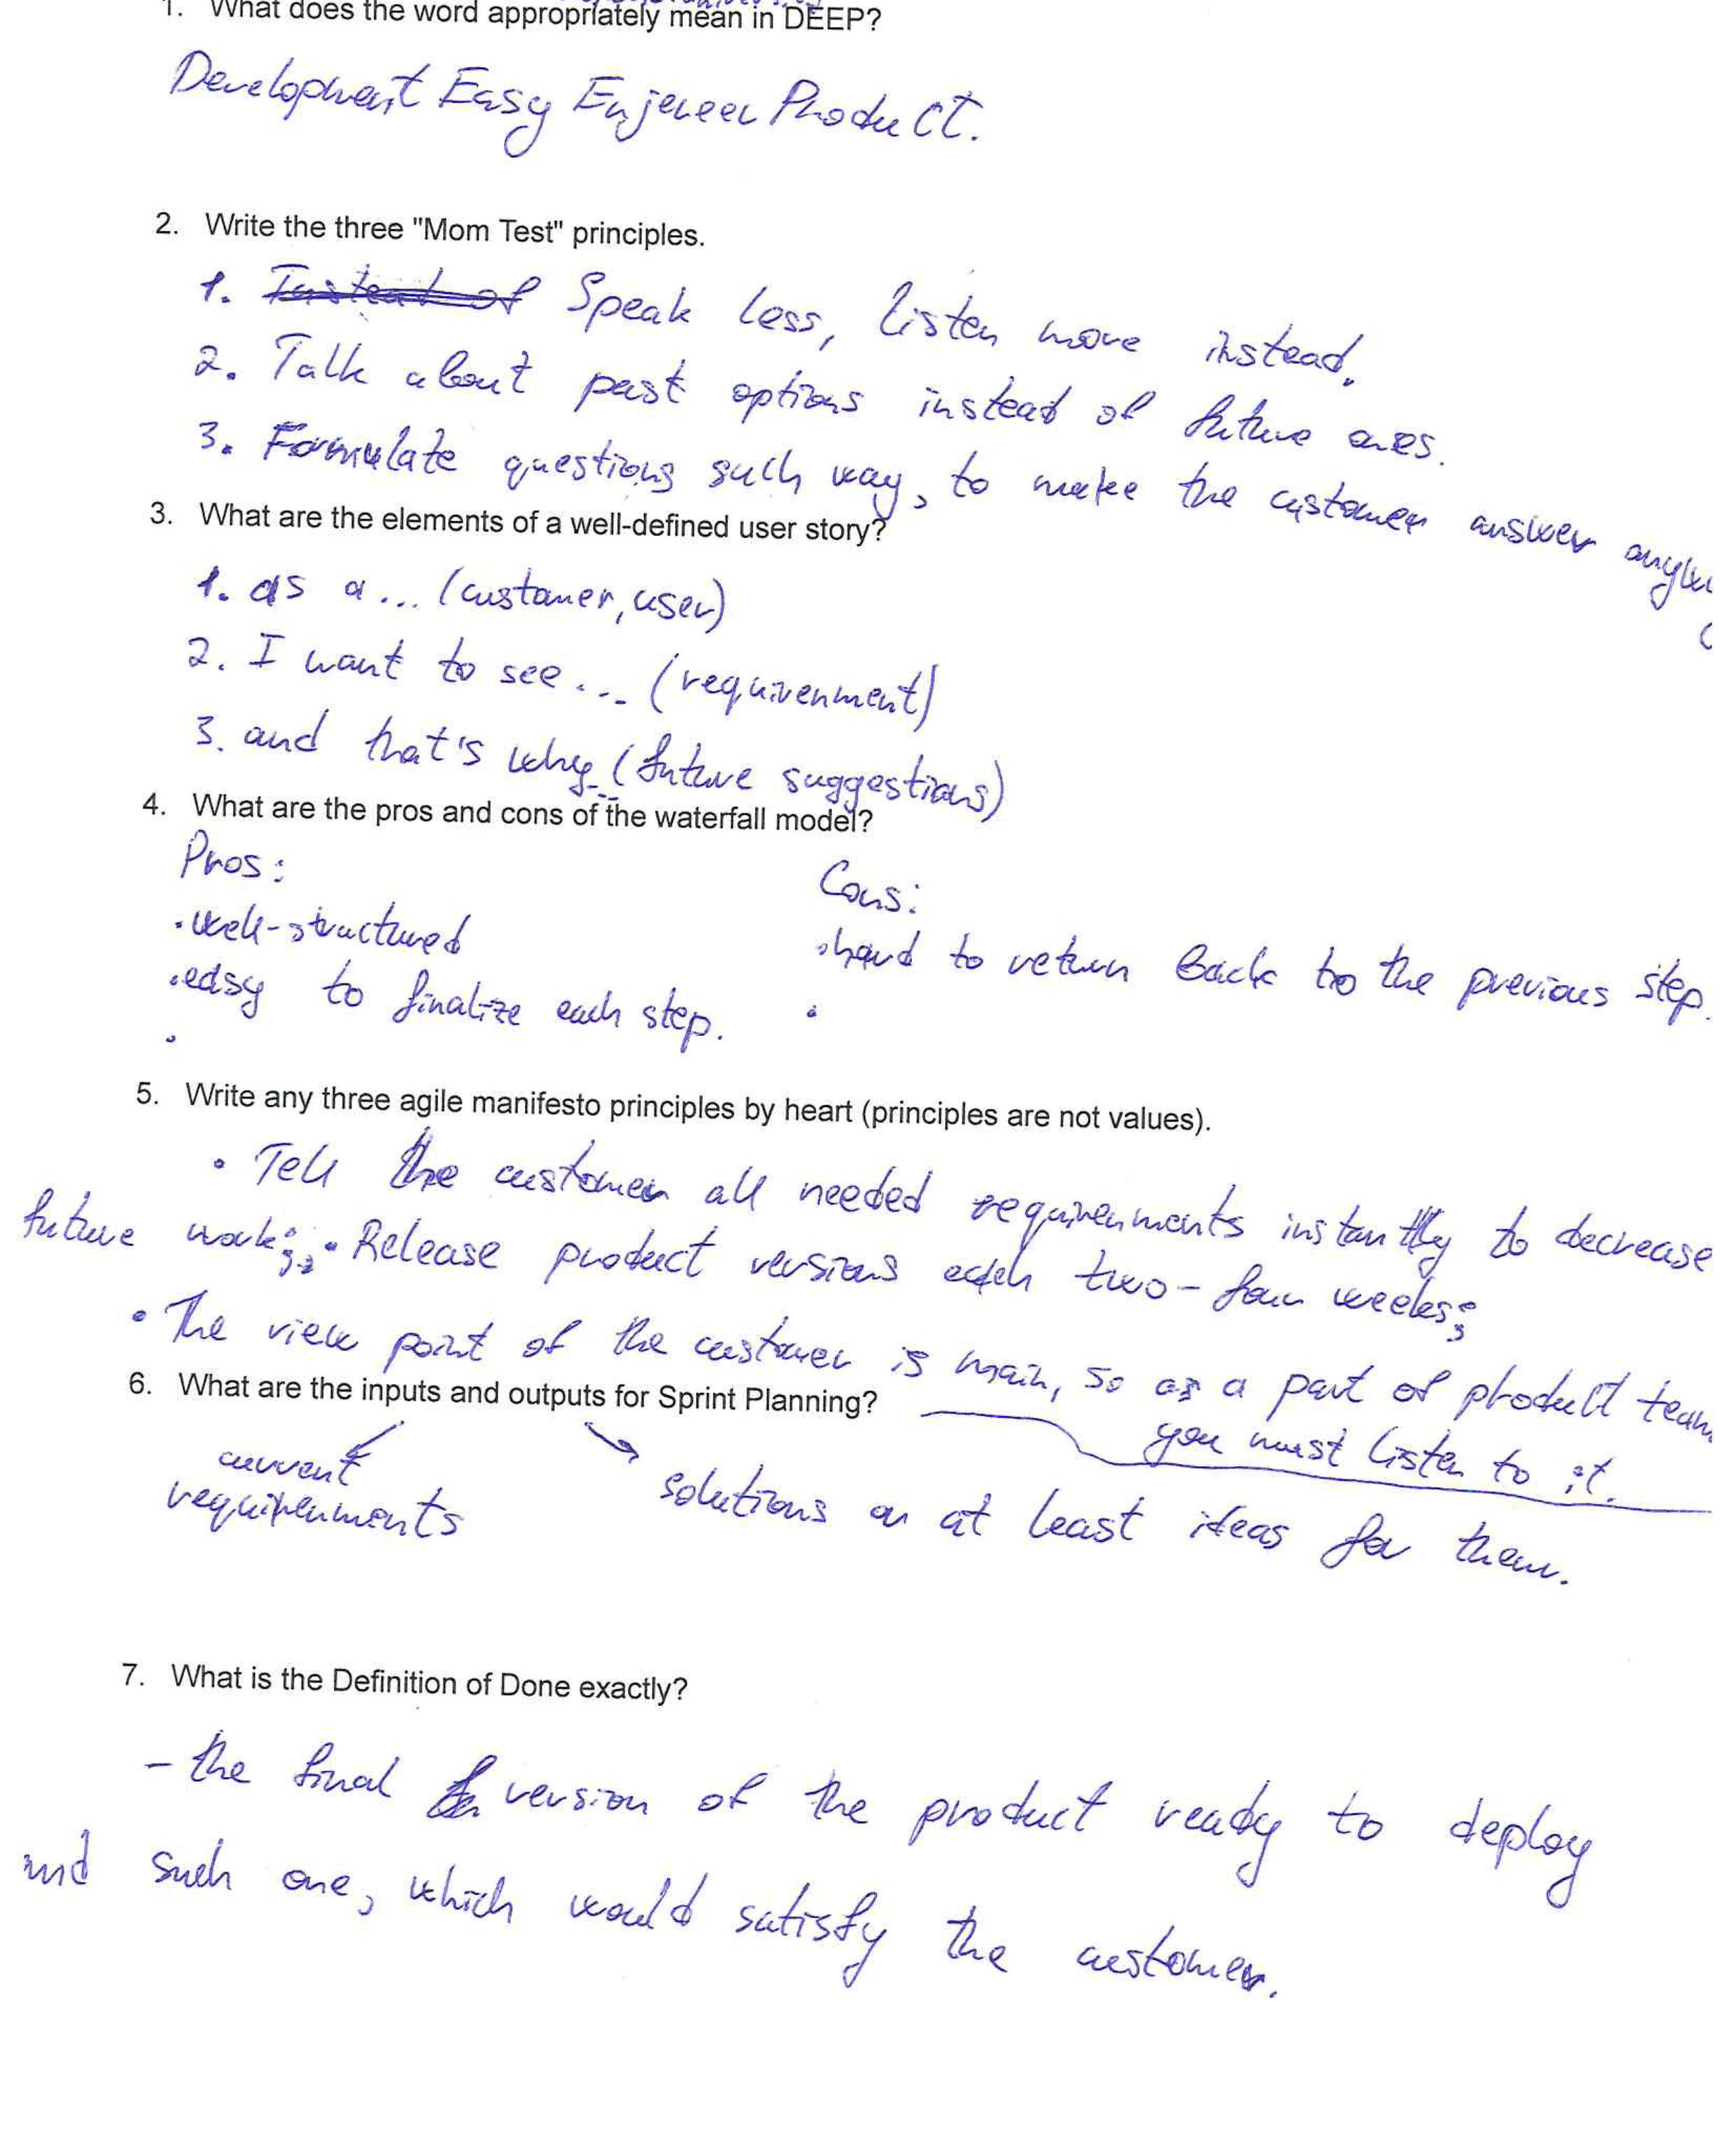 1. What does the word appropriately mean in DEEP?
Development Easy Enjeneer Product.
2. Write the three "Mom Test" principles.
1. Instead of Speak less, listen more instead.
2. Talk about past options instead of future ones.
3. Formulate questions such way, to make the customer answer
3. What are the elements of a well-defined user story?
1. as a... (customer, user)
2. I want to see... (requirenment)
3. and that's why... (future suggestions)
4. What are the pros and cons of the waterfall model?
Pros:
Cons:
· well-structured
· hard to return back to the previous step.
· easy to finalize each step.
·
·
5. Write any three agile manifesto principles by heart (principles are not values).
· Tell the customer all needed requirenments instantly to decrease
future work; · Release product versions each two-four weeks;
· The view point of the customer is main, so as a part of product team
you must listen to it.
6. What are the inputs and outputs for Sprint Planning?
current
requirenments
solutions or at least ideas for them.
7. What is the Definition of Done exactly?
- the final version of the product ready to deploy
and such one, which would satisfy the customer.